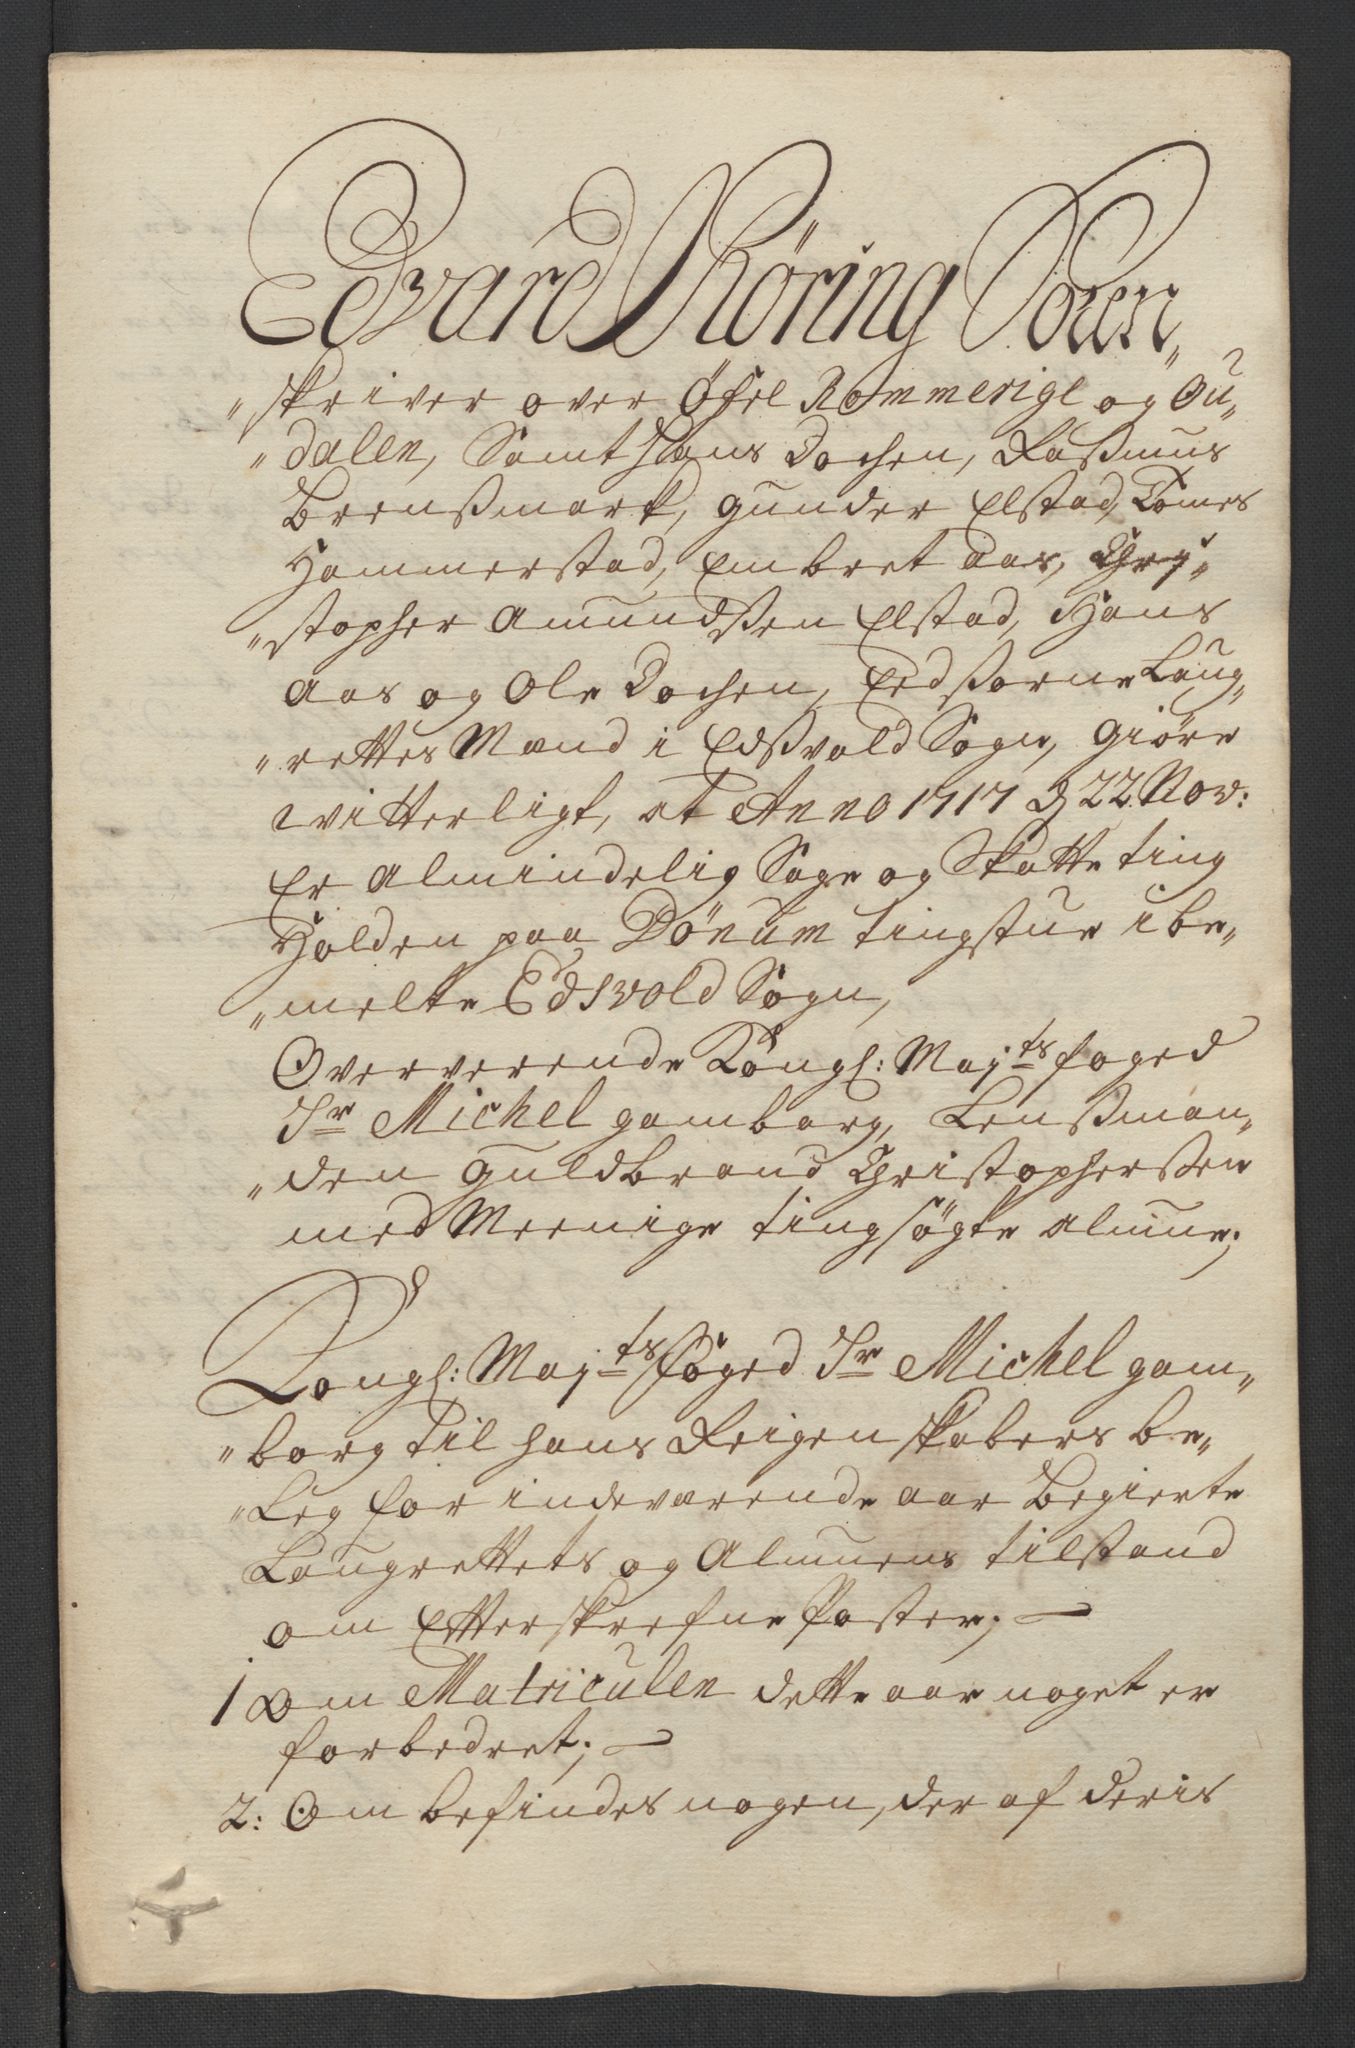 Edvard Röring Soren„
„skriver over Öfre Rommerige og Ou„
„dalen, Samt Hans Dochen, Rasmus
Brensmark, gunder Elstad, Tomes
Hammerstad, Embret Aas, Chri„
„stopher Amundsen Elstad, Hans
Aas og Ole Dochen, Eedsorne Laug„
„rettes Mænd i Edsvold Sogn, giöre
witterligt, at Anno 1717 d 22. Nov:
Er Almindelig Sage og Skatte ting
Holden paa Dönum tingstue i be„
„melte Edsvold Sogn,
Oververende Kongl: Mayts foged
Sr Michel gamborg, Lensman„
„den guldbrand Christophersen
med Meenige tingsögte almue;
Kongl: Mayts foged Sr Michel gam„
„borg til hans Reigenskabers be„
„Leg for indeværende aar Begierte
Laugrettets og Almuens tilstand
om Efterskrefne Poster;
1 Om Matriculen dette aar noget er
forbedret;
2: Om befindes nogen, der af deris